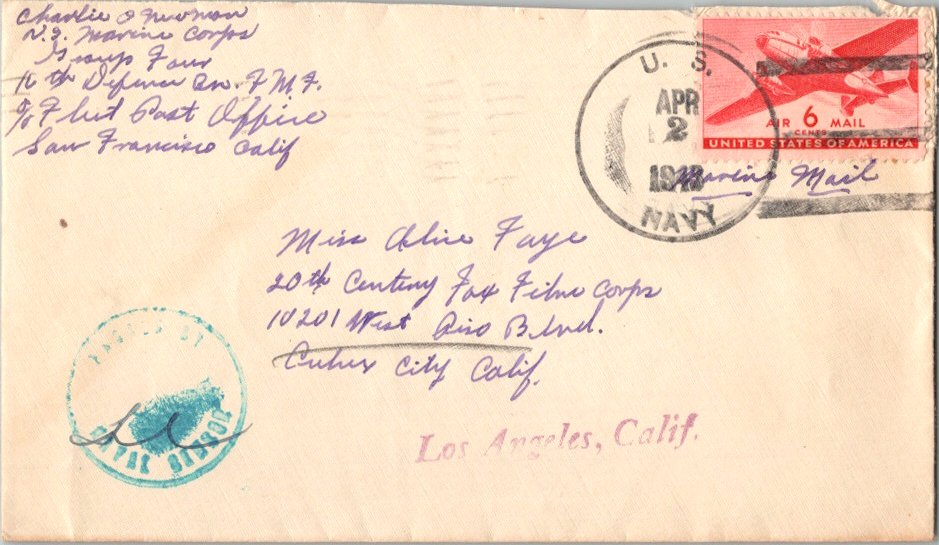 Charlie O Newman
U.S. Marine Corps
Group Four
10th Defence Bn. F.M.F.
c/o Fleet Post Office
San Francisco Calif
U. S.
APR
2
1943
NAVY
AIR 6 MAIL
CENTS
UNITED STATES OF AMERICA
Marine Mail
Miss Alice Faye
20th Century Fox Film Corps
10201 West Pico Blvd.
Culver City Calif.
PASSED BY
NAVAL CENSOR
Los Angeles, Calif.